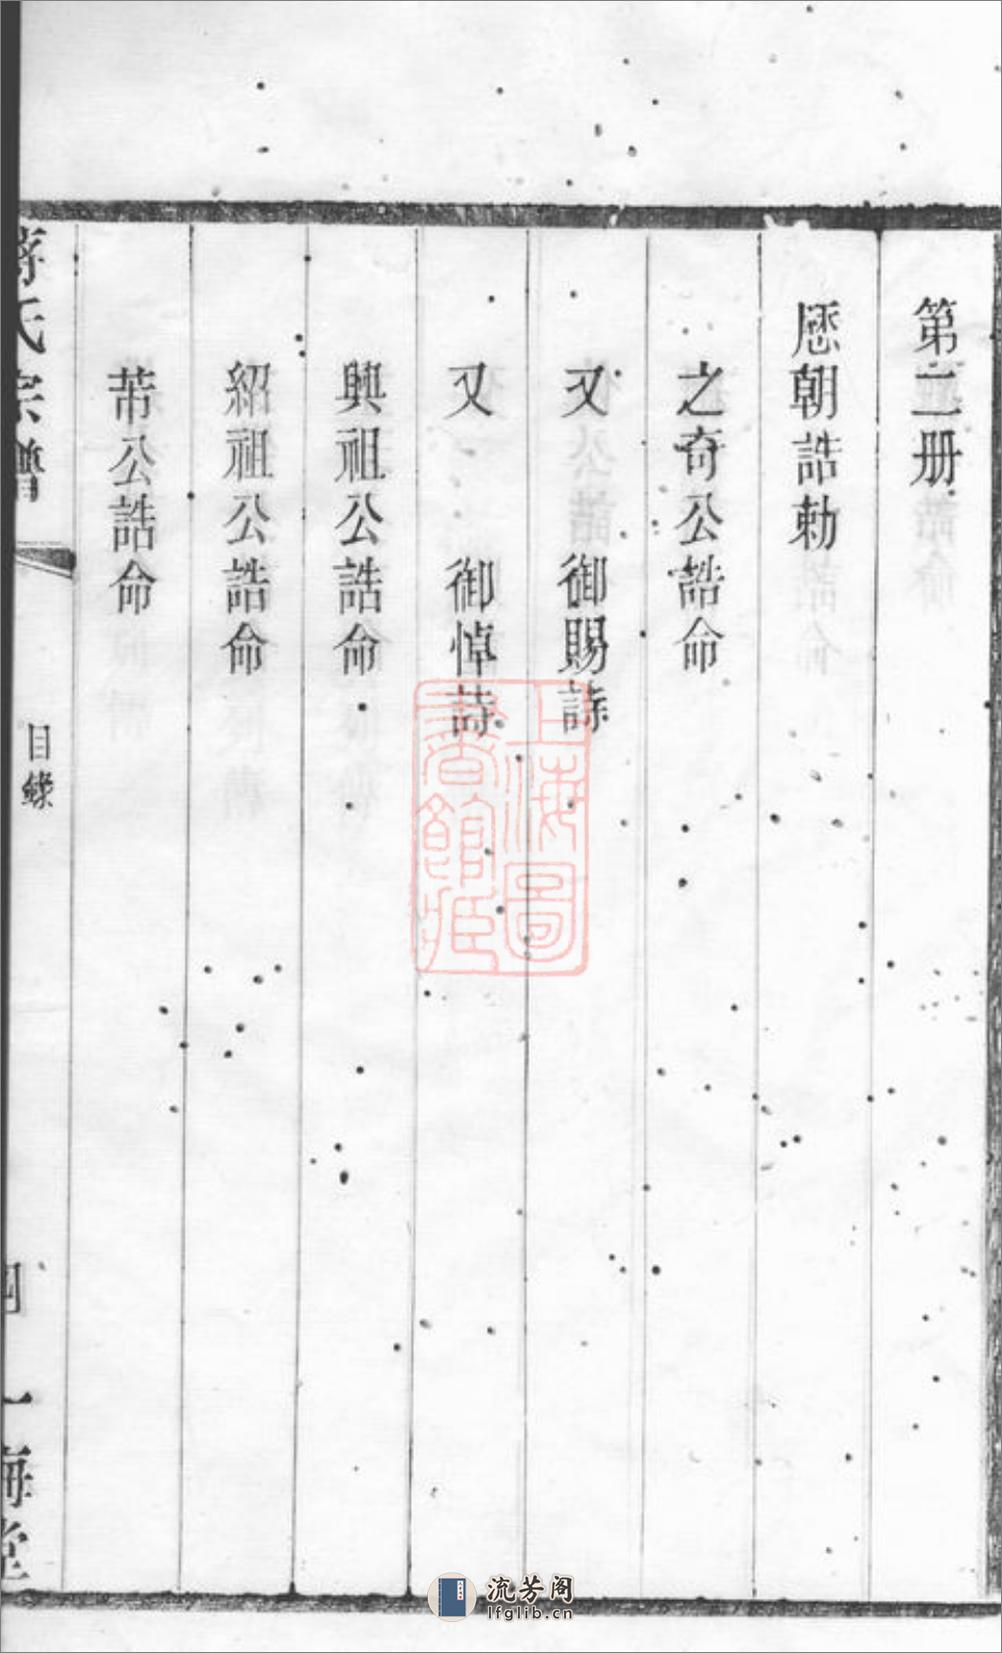 第二册
歷朝誥勅
之奇公誥命
又 御賜詩
又 御悼詩
興祖公誥命
紹祖公誥命
芾公誥命
蔣氏宗譜
目錄
四
一梅堂
上海圖
書館藏
流芳阁
lfglib.cn